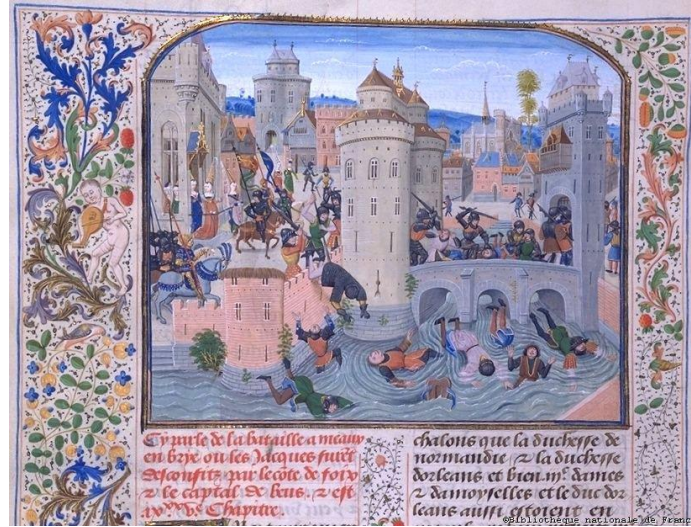 Cy parle de la bataille a meaux
en brye ou les Jacques furēt
desconfitz par le cōte de foix
& le captal de beus. & est
ixˣˣ. vᵉ. Chapitre.
chalons que la duchesse de
normandie & la duchesse
dorleans et bien .iiiᶜ. dames
& damoyselles et le duc dor
leans aussi estoient en
©Bibliothèque nationale de Franc